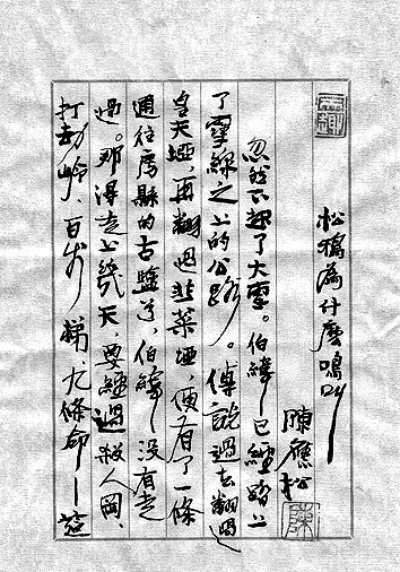 松鴉為什麼鳴叫
陳應松
忽然下起了大雪。伯緯已經踏上
了雪線之上的公路。傳說過去翻過
皇天埡,再翻過韭菜埡,便有了一條
通往房縣的古鹽道,伯緯沒有走
過。那得走上幾天,要經過殺人岡、
打劫岭、百步梯、九條命——
陳